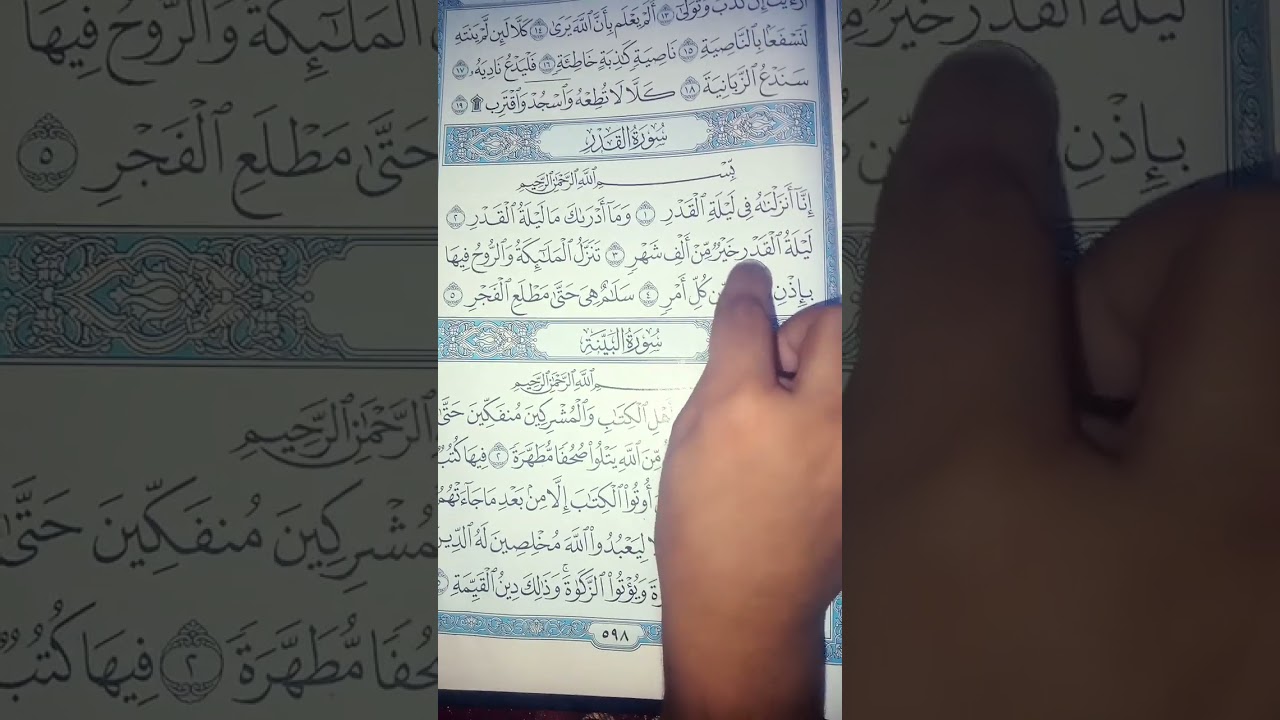 كَذَّبَ وَتَوَلَّىٰٓ ١٣ أَلَمْ يَعْلَم بِأَنَّ ٱللَّهَ يَرَىٰ ١٤ كَلَّا لَئِن لَّمْ يَنتَهِ
لَنَسْفَعًۢا بِٱلنَّاصِيَةِ ١٥ نَاصِيَةٍ كَٰذِبَةٍ خَاطِئَةٍ ١٦ فَلْيَدْعُ نَادِيَهُۥ ١٧
سَنَدْعُ ٱلزَّبَانِيَةَ ١٨ كَلَّا لَا تُطِعْهُ وَٱسْجُدْ وَٱقْتَرِب ۩ ١٩
سُورَةُ القَدْرِ
بِسْمِ ٱللَّهِ ٱلرَّحْمَٰنِ ٱلرَّحِيمِ
إِنَّآ أَنزَلْنَٰهُ فِي لَيْلَةِ ٱلْقَدْرِ ١ وَمَآ أَدْرَىٰكَ مَا لَيْلَةُ ٱلْقَدْرِ ٢
لَيْلَةُ ٱلْقَدْرِ خَيْرٌ مِّنْ أَلْفِ شَهْرٍ ٣ تَنَزَّلُ ٱلْمَلَٰٓئِكَةُ وَٱلرُّوحُ فِيهَا
بِإِذْنِ مِّن كُلِّ أَمْرٍ ٤ سَلَٰمٌ هِيَ حَتَّىٰ مَطْلَعِ ٱلْفَجْرِ ٥
سُورَةُ البَيِّنَةِ
ٱللَّهِ ٱلرَّحْمَٰنِ ٱلرَّحِيمِ
أَهْلِ ٱلْكِتَٰبِ وَٱلْمُشْرِكِينَ مُنفَكِّينَ حَتَّىٰ
مِّنَ ٱللَّهِ يَتْلُواْ صُحُفًا مُّطَهَّرَةً ٢ فِيهَا كُتُبٌ
أُوتُواْ ٱلْكِتَٰبَ إِلَّا مِنۢ بَعْدِ مَا جَآءَتْهُمُ
لِيَعْبُدُواْ ٱللَّهَ مُخْلِصِينَ لَهُ ٱلدِّينَ
وَيُؤْتُواْ ٱلزَّكَوٰةَ ۚ وَذَٰلِكَ دِينُ ٱلْقَيِّمَةِ ٥
٥٩٨